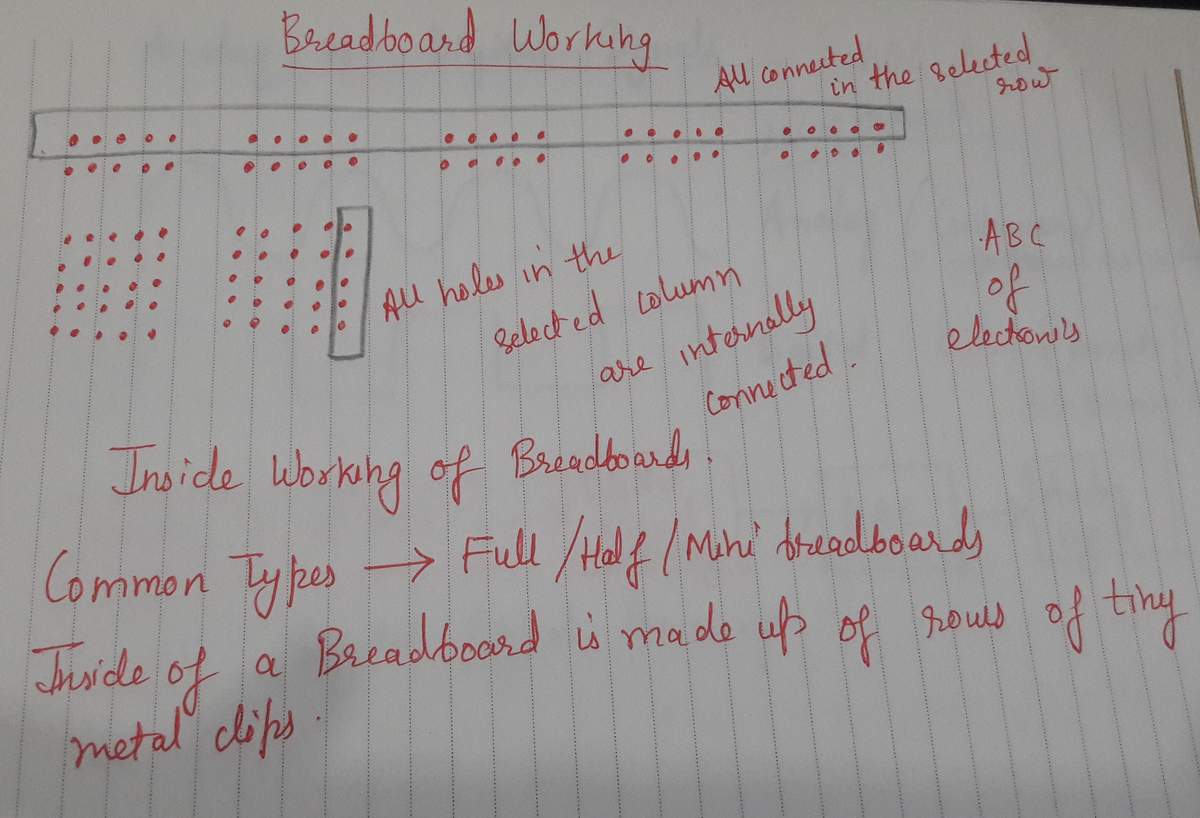 Breadboard Working
All connected
in the selected
row
All holes in the
selected column
are internally
connected.
ABC
of
electronis
Inside Working of Breadboards.
Common Types → Full/Half/Mini breadboards
Inside of a Breadboard is made up of rows of tiny
metal clips.